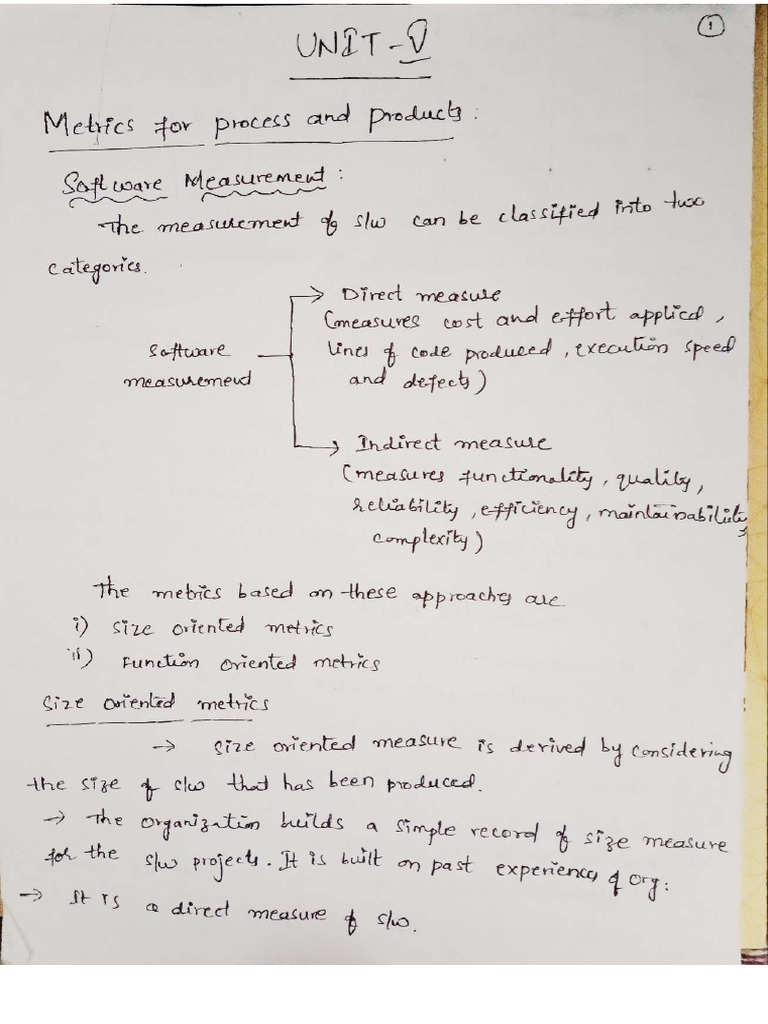 1
UNIT-V
Metrics for process and products:
Software Measurement:
The measurement of s/w can be classified into two
categories.
Direct measure
(measures cost and effort applied,
lines of code produced, execution speed
and defects)
software
measurement
Indirect measure
(measures functionality, quality,
reliability, efficiency, maintainability,
complexity)
The metrics based on these approaches are
i) size oriented metrics
ii) Function oriented metrics
size oriented metrics
→ size oriented measure is derived by considering
the size of s/w that has been produced.
→ The organization builds a simple record of size measure
for the s/w projects. It is built on past experiences of org:
→ It is a direct measure of s/w.